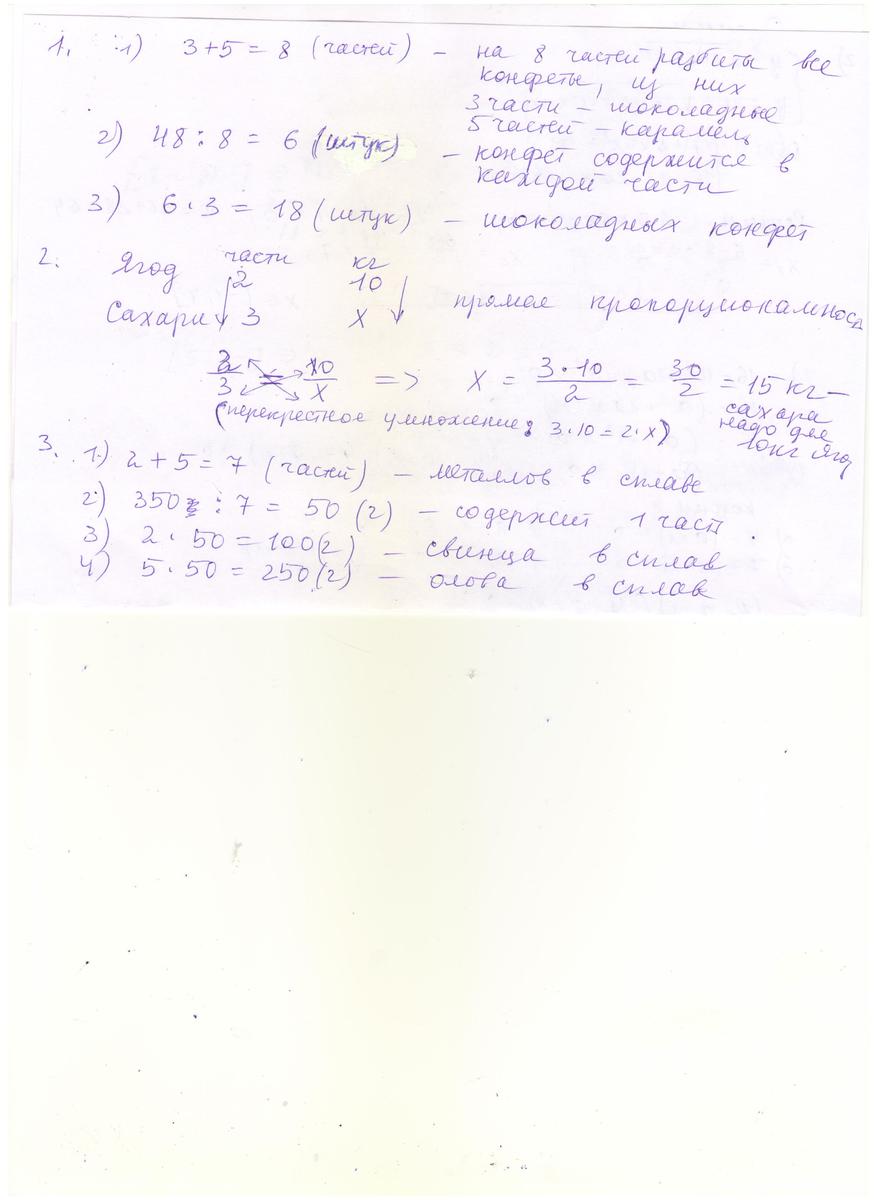 1. 1) 3+5 = 8 (частей) – на 8 частей разбиты все
конфеты, из них
3 части – шоколадные
5 частей – карамель
2) 48 : 8 = 6 (штук) – конфет содержится в
каждой части
3) 6 · 3 = 18 (штук) – шоколадных конфет
2. части кг
Ягод 2 10
Сахари 3 x прямая пропорциональность
2/3 = 10/x => x = 3·10/2 = 30/2 = 15 кг –
сахара
надо для
10кг ягод
(перекрестное умножение: 3·10 = 2·x)
3. 1) 2+5 = 7 (частей) – металлов в сплаве
2) 350 : 7 = 50 (г) – содержит 1 часть
3) 2 · 50 = 100(г) – свинца в сплав
4) 5 · 50 = 250(г) – олова в сплав